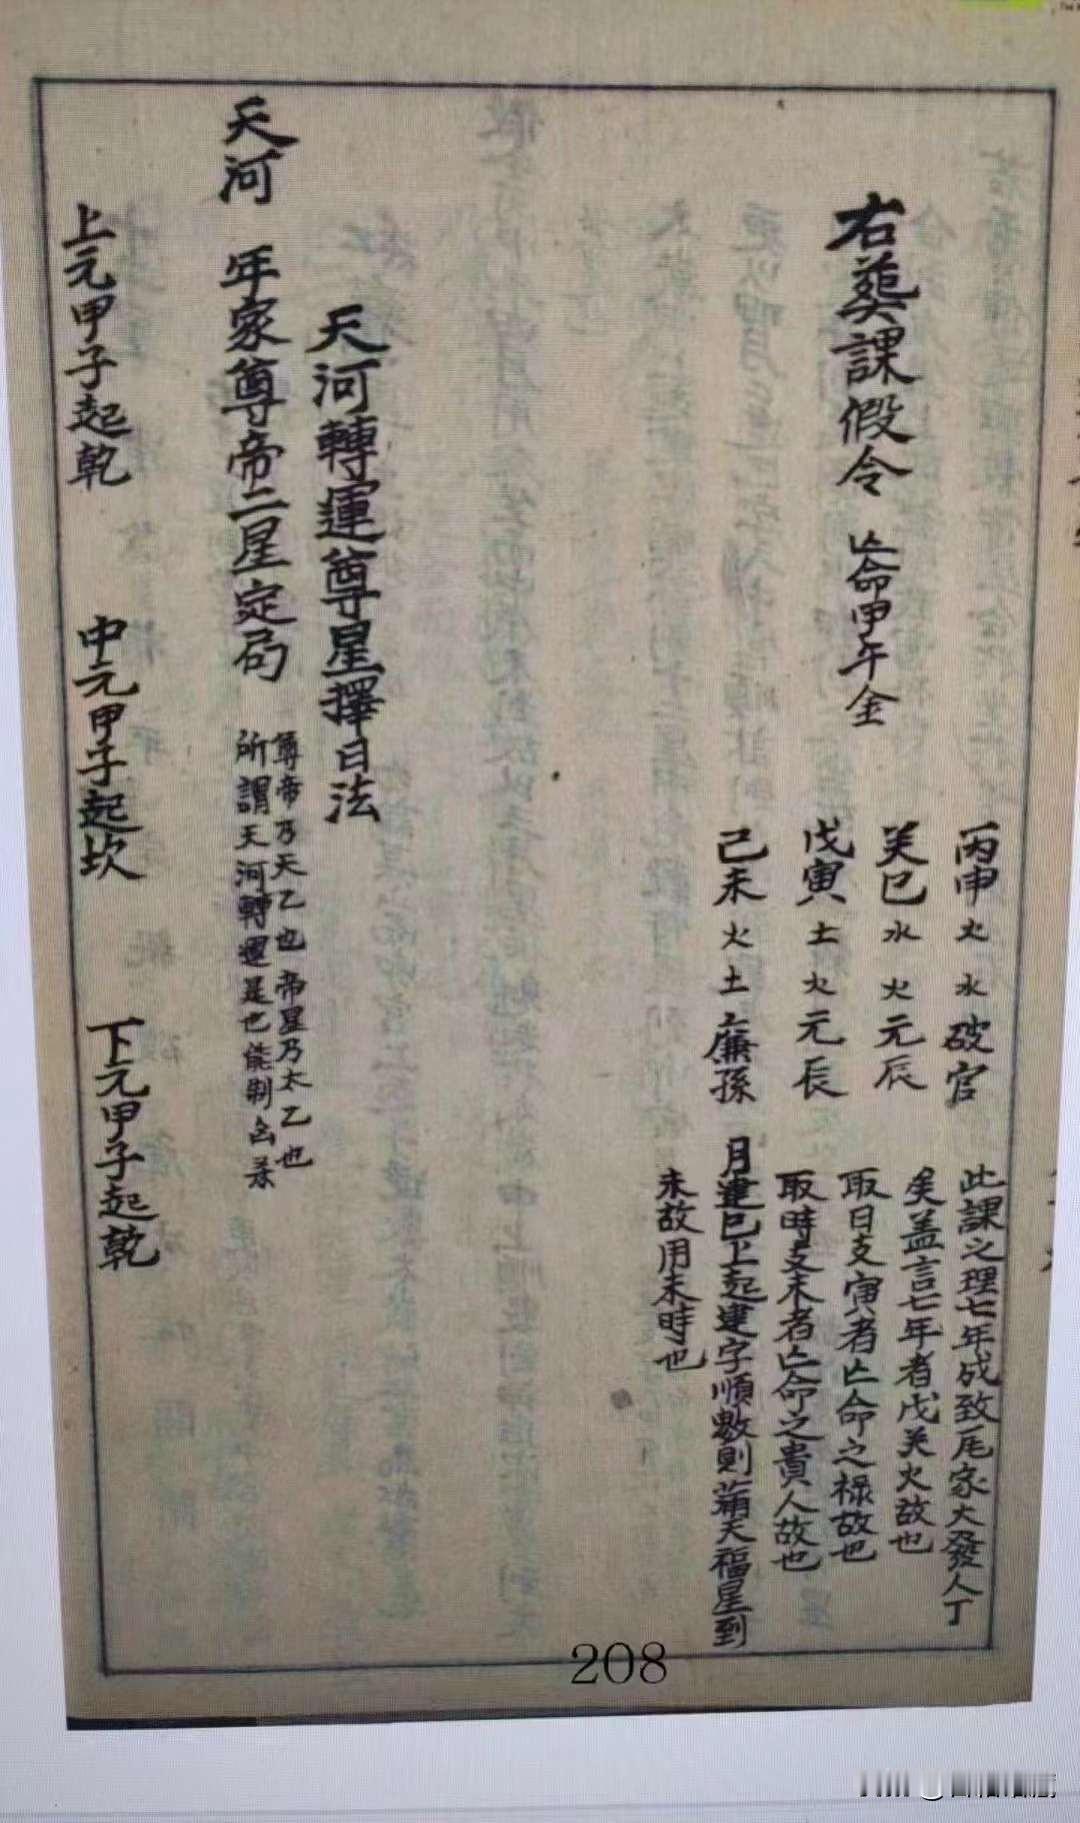 右葬課假令 亾命甲午金
丙申火水破官
癸巳水火元辰
戊寅土火元辰
己未火土廉孫
此課之理七年成致一厇家大發人丁
矣盖言七年者戊癸火故也
取日支寅者亾命之禄故也
取時支未者亾命之貴人故也
月建巳上起建字順數則滿天福星到
未故用未時也
天河轉運尊星擇日法
天河 年家尊帝二星定局
尊帝乃天乙也帝星乃太乙也
所謂天河轉運是也能制凶杀
上元甲子起乾 中元甲子起坎 下元甲子起乾
208